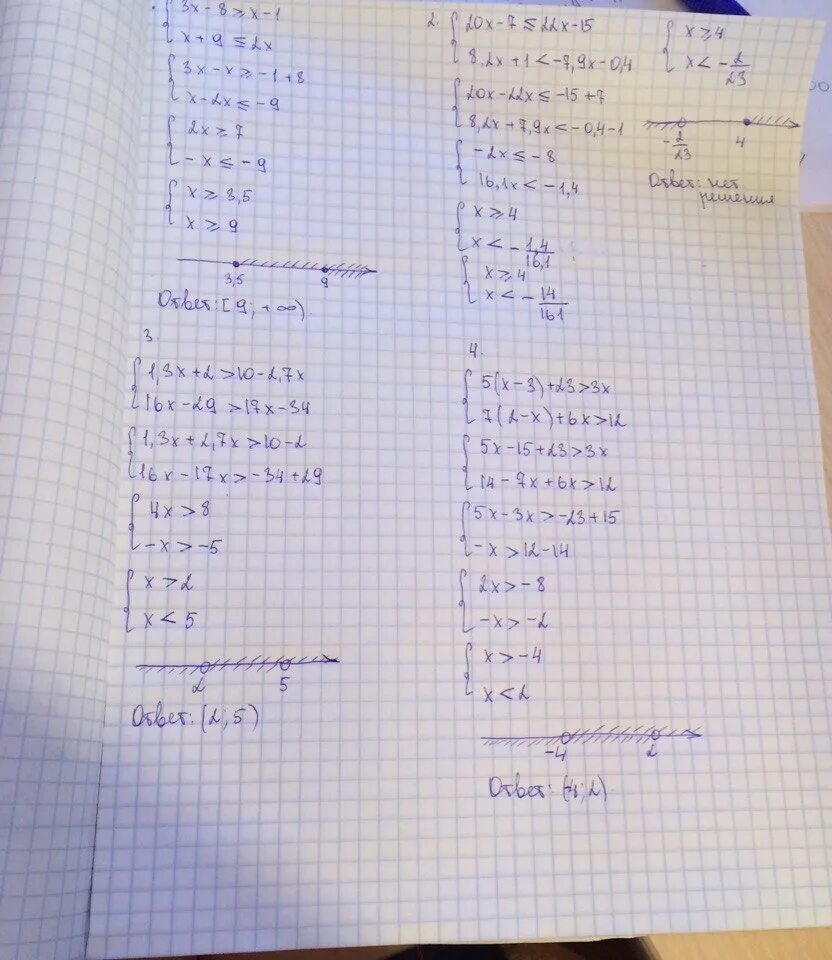 3x-8≥x-1
x+9≤2x
3x-x≥-1+8
x-2x≤-9
2x≥7
-x≤-9
x≥3,5
x≥9
3,5 9
Ответ: [9; +∞)
2.
20x-7≤22x-15
8,2x+1<-7,9x-0,4
20x-22x≤-15+7
8,2x+7,9x<-0,4-1
-2x≤-8
16,1x<-1,4
x≥4
x<-1,4/16,1
x≥4
x<-14/161
x≥4
x<-2/23
-2/23 4
Ответ: нет
решения
3.
1,3x+2>10-2,7x
16x-29>17x-34
1,3x+2,7x>10-2
16x-17x>-34+29
4x>8
-x>-5
x>2
x<5
2 5
Ответ: (2; 5)
4.
5(x-3)+23>3x
7(2-x)+6x>12
5x-15+23>3x
14-7x+6x>12
5x-3x>-23+15
-x>12-14
2x>-8
-x>-2
x>-4
x<2
-4 2
Ответ: (-4; 2)